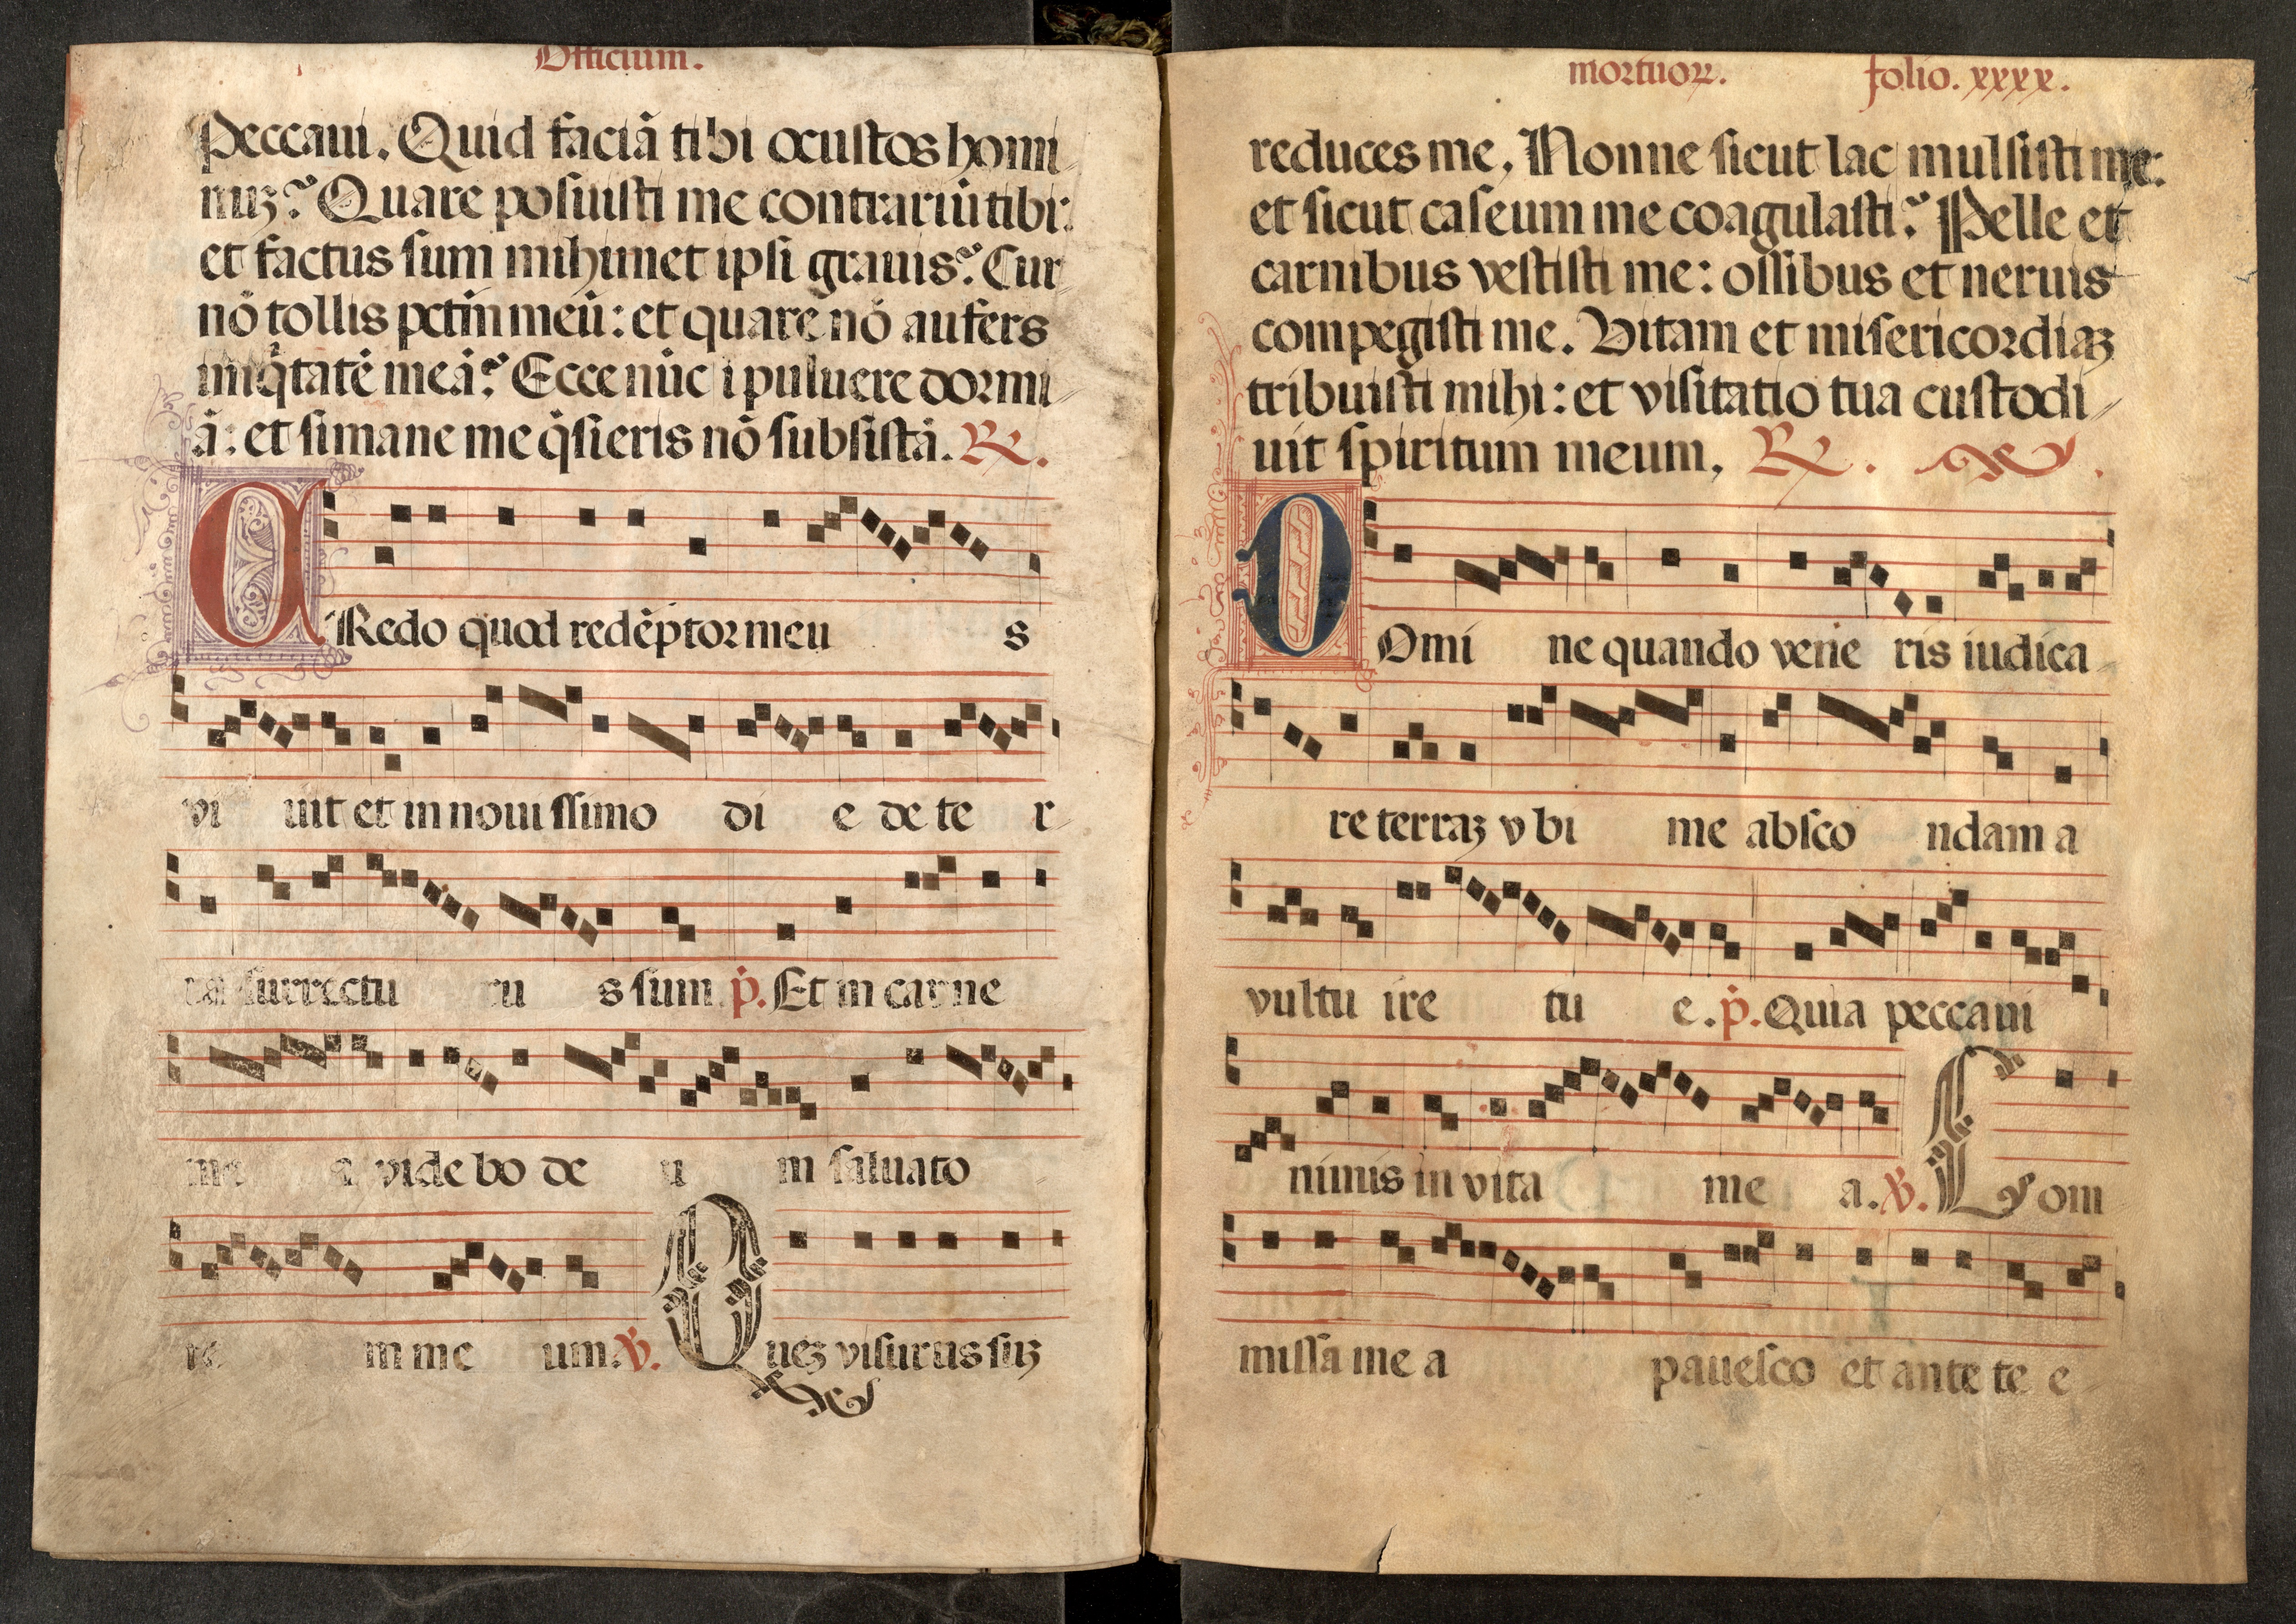 Officium.
Peccaui. Quid faciã tibi o custos homi
nuȝ? Quare posuisti me contrariũ tibi:
et factus sum mihimet ipsi grauis? Cur
nõ tollis pctm̃ meũ: et quare nõ aufers
iniq̃tatẽ meã? Ecce nũc ĩ puluere dormi
ã: et si mane me q̃sieris nõ subsistã. ℟.
CRedo quod redẽptor meu s
vi uit et in noui ssimo di e de te r
ra surrectu ru s sum. p̃. Et in carne
me a vide bo de u m saluato
re m me um. ℣. Queȝ visurus suȝ
mortuoꝝ. folio. xxxx.
reduces me. Nonne sicut lac mulsisti me:
et sicut caseum me coagulasti? Pelle et
carnibus vestisti me: ossibus et neruis
compegisti me. Vitam et misericordiaȝ
tribuisti mihi: et visitatio tua custodi
uit spiritum meum. ℟.
DOmi ne quando venie ris iudica
re terraȝ v bi me absco ndam a
vultu ire tu e. p̃. Quia peccaui
nimis in vita me a. ℣. Com
missa me a pauesco et ante te e